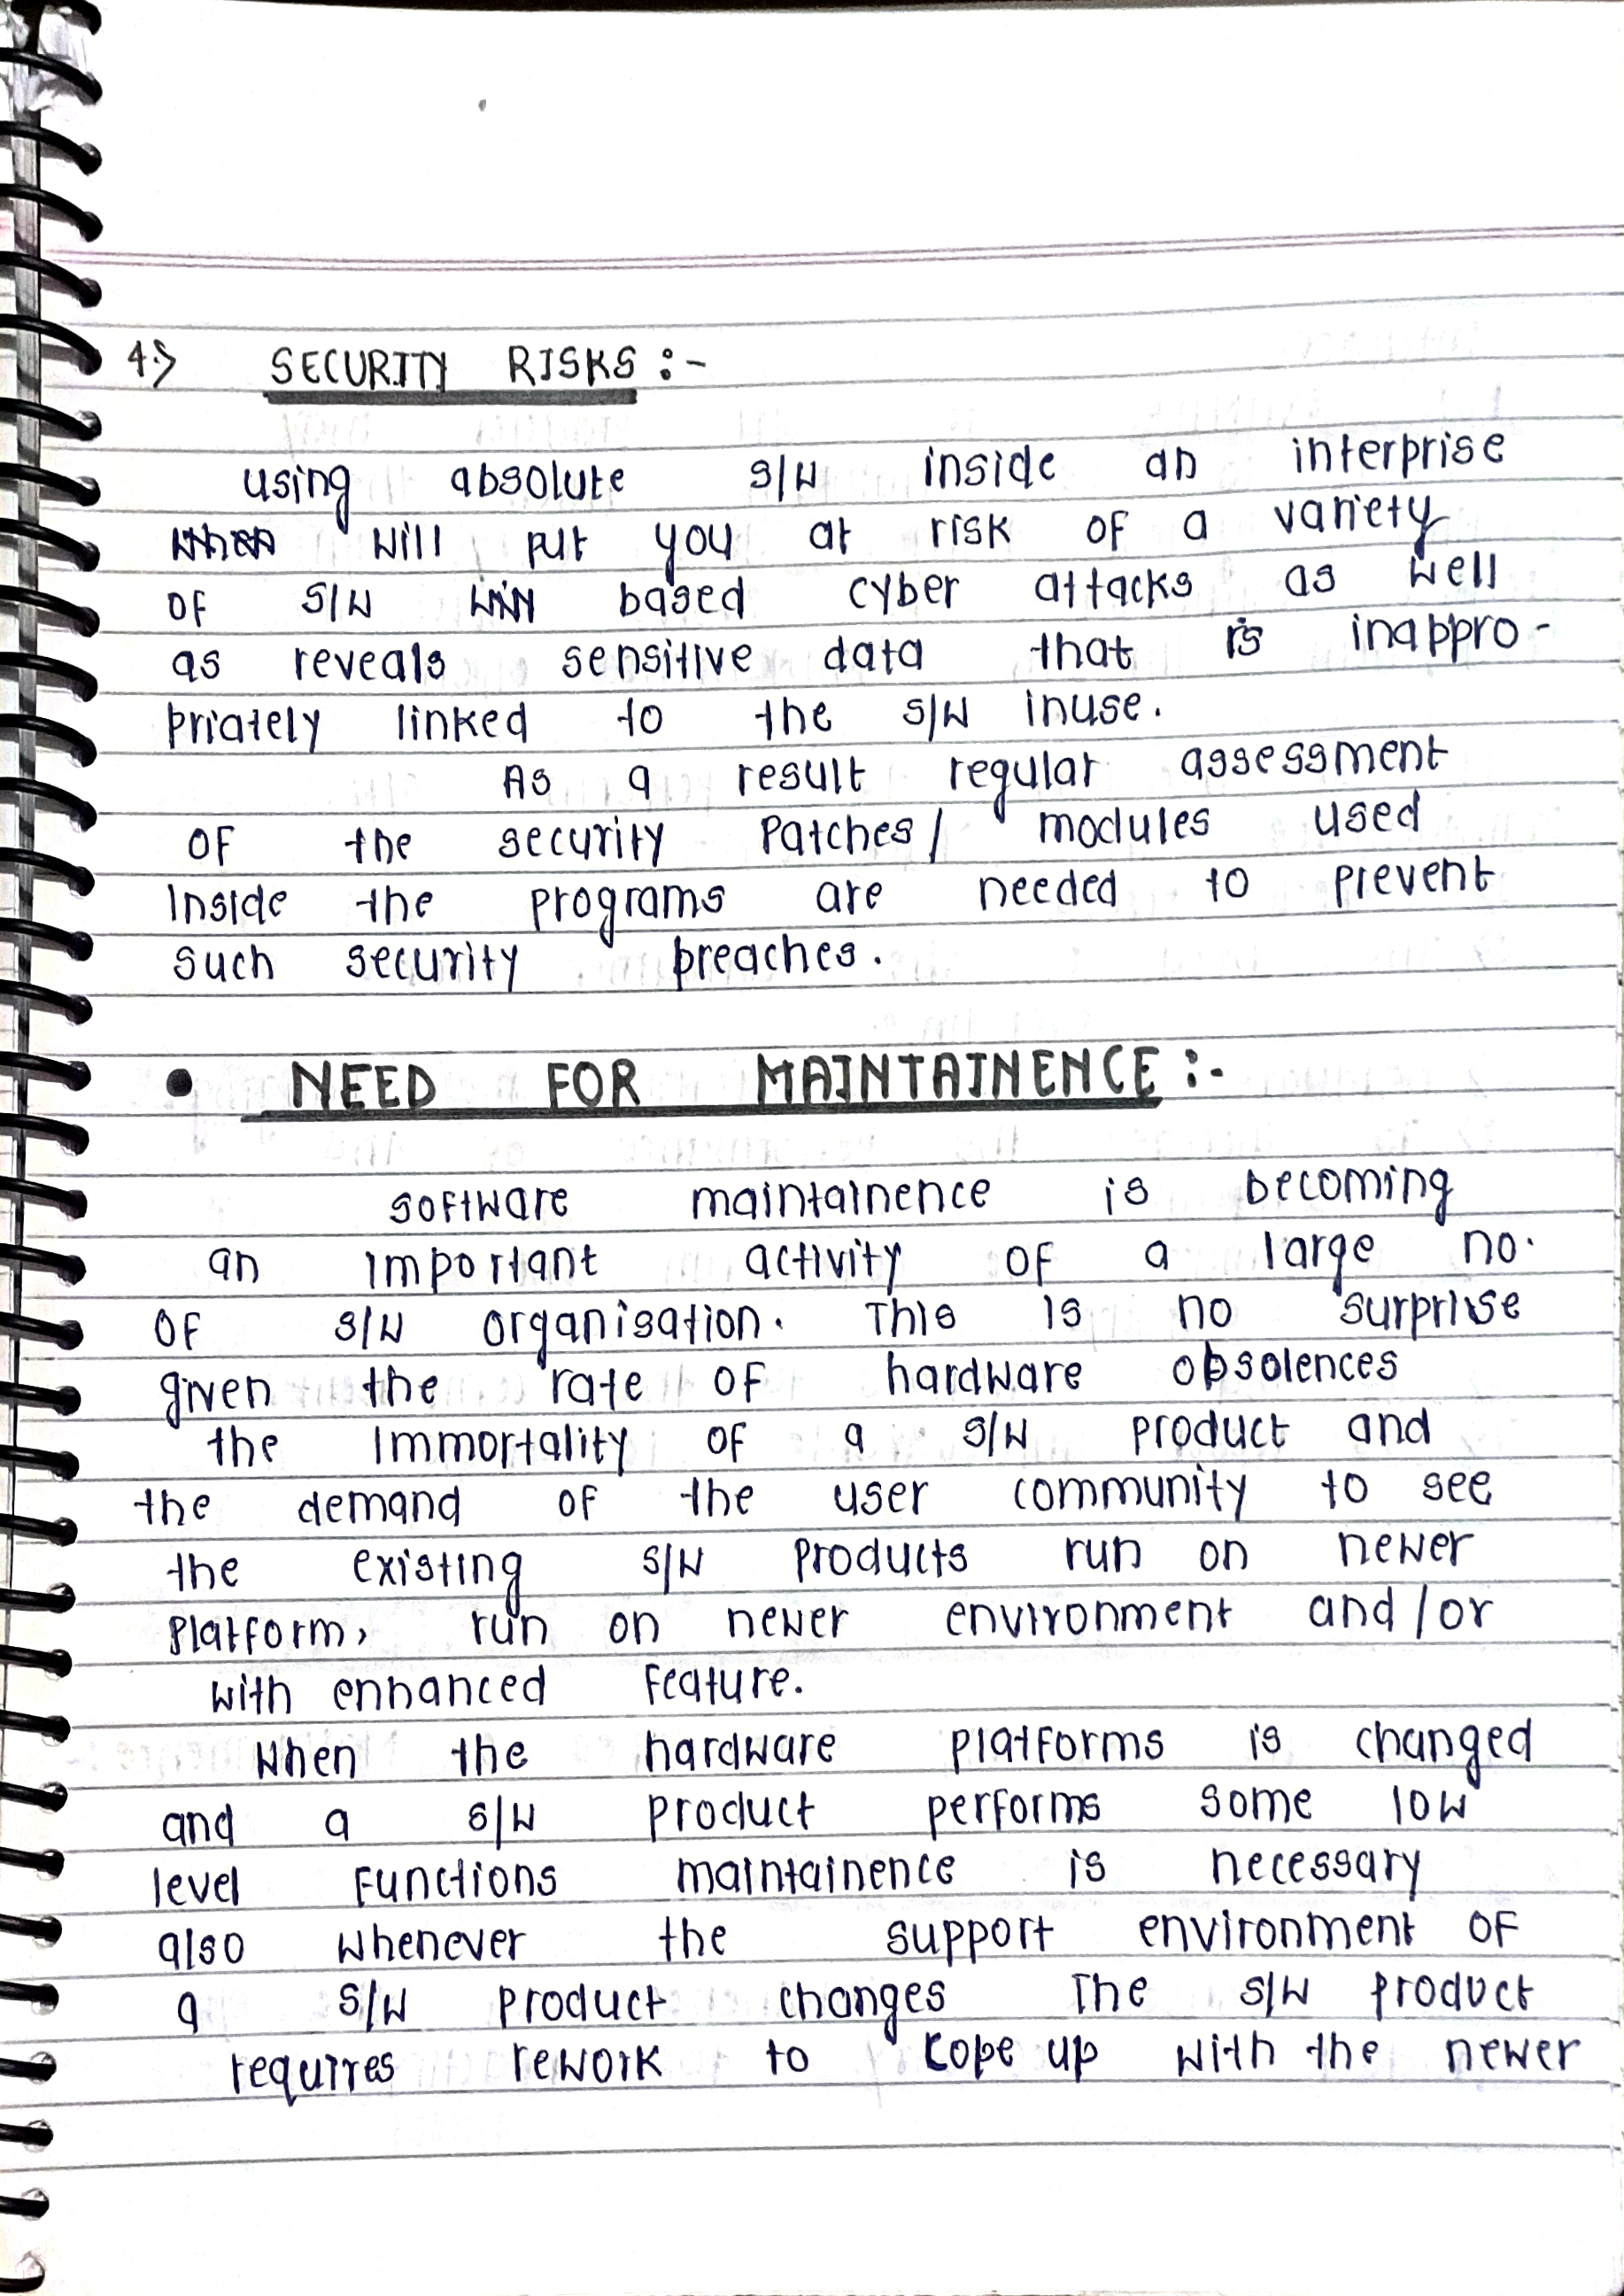 4.> SECURITY RISKS :-
using absolute S/W inside an interprise
will put you at risk of a variety
of S/W based cyber attacks as well
as reveals sensitive data that is inappro-
priately linked to the S/W inuse.
As a result regular assessment
of the security Patches/ modules used
Inside the programs are needed to prevent
such security breaches.
• NEED FOR MAINTAINENCE :-
software maintainence is becoming
an important activity of a large no.
of S/W organisation. This is no surprise
given the rate of hardware obsolences
the immortality of a S/W product and
the demand of the user community to see
the existing S/W products run on newer
Platform, run on newer environment and/or
with enhanced feature.
When the hardware platforms is changed
and a S/W product performs some low
level functions maintainence is necessary
also whenever the support environment of
a S/W product changes The S/W product
requires rework to cope up with the newer